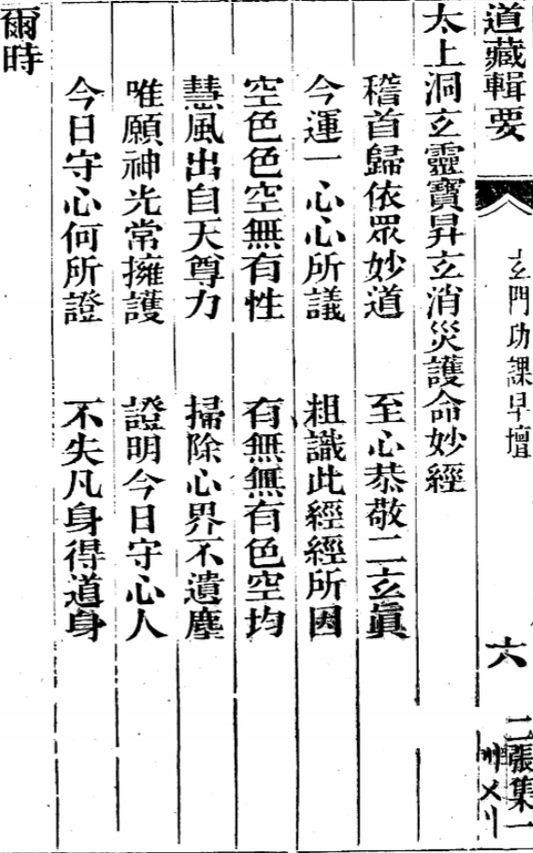 道藏輯要　玄門功課早壇　六　二　張集一
太上洞玄靈寶昇玄消災護命妙經
稽首歸依眾妙道　至心恭敬二玄眞
今運一心心所議　粗識此經經所因
空色色空無有性　有無無有色空均
慧風出自天尊力　掃除心界不遺塵
唯願神光常擁護　證明今日守心人
今日守心何所證　不失凡身得道身
爾時